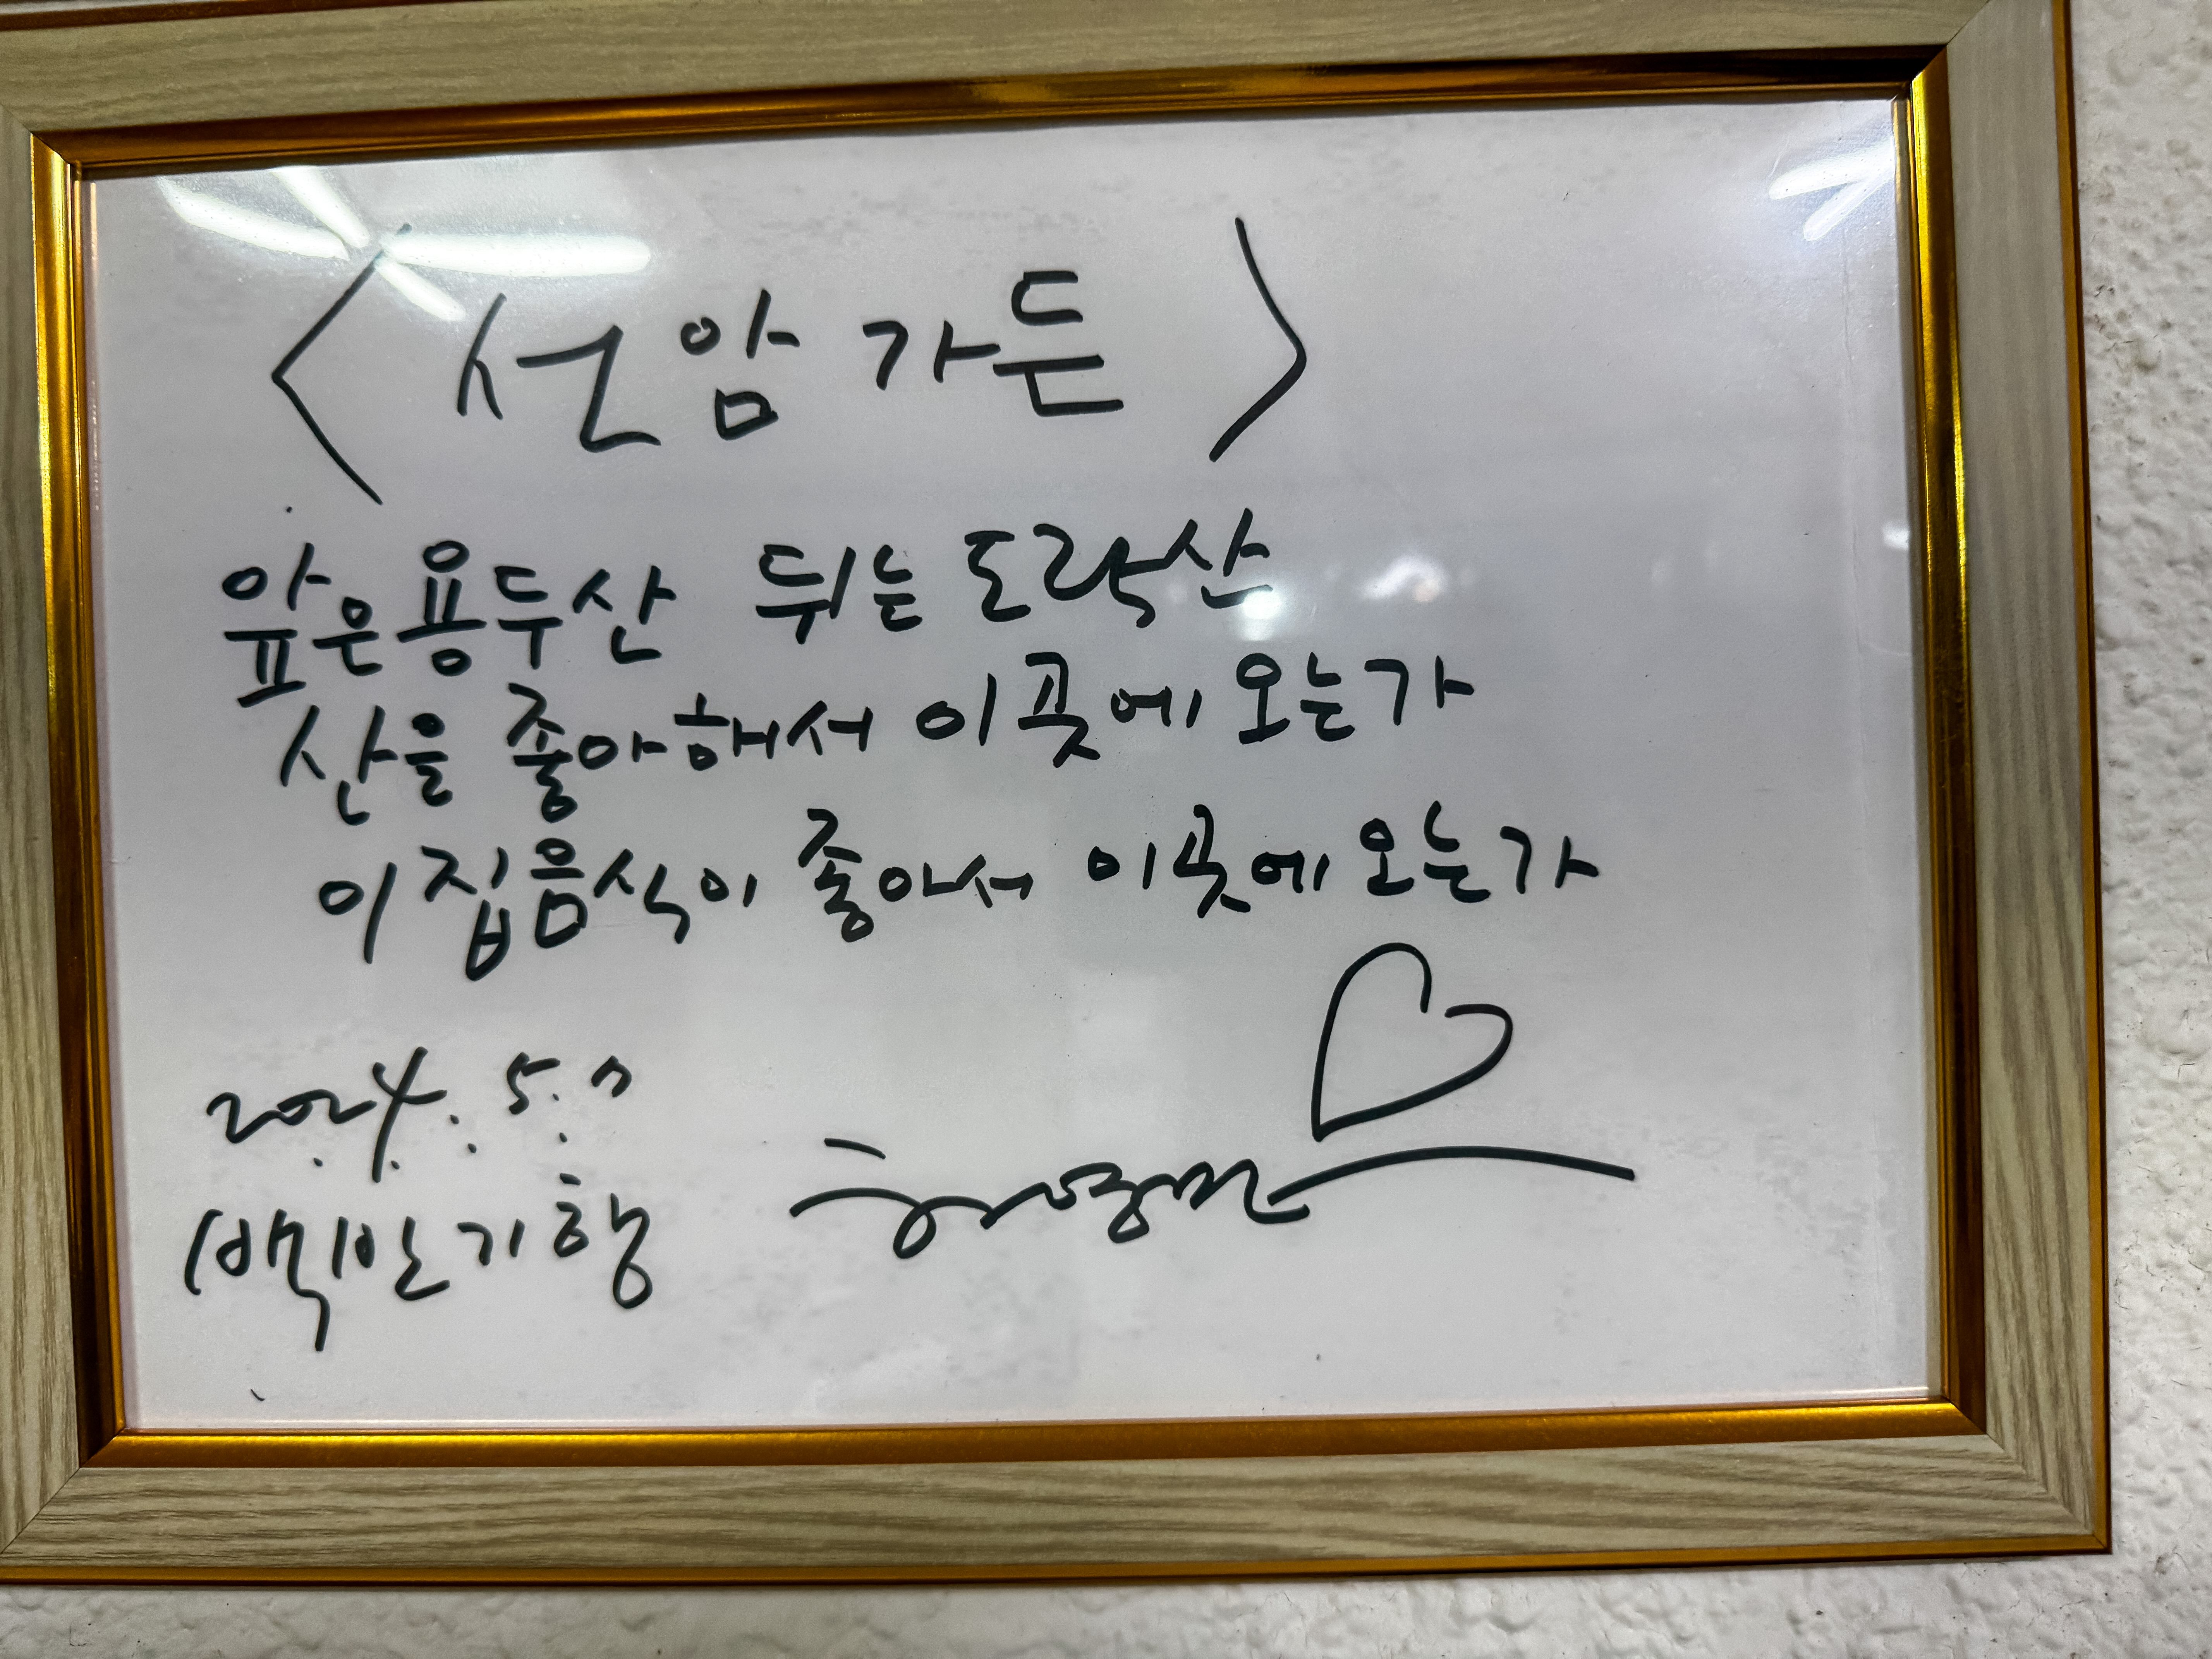 <선암가든>
앞은 용두산 뒤는 도락산
산을 좋아해서 이곳에 오는가
이집음식이 좋아서 이곳에 오는가
2024. 5. 7
백반기행 허영만